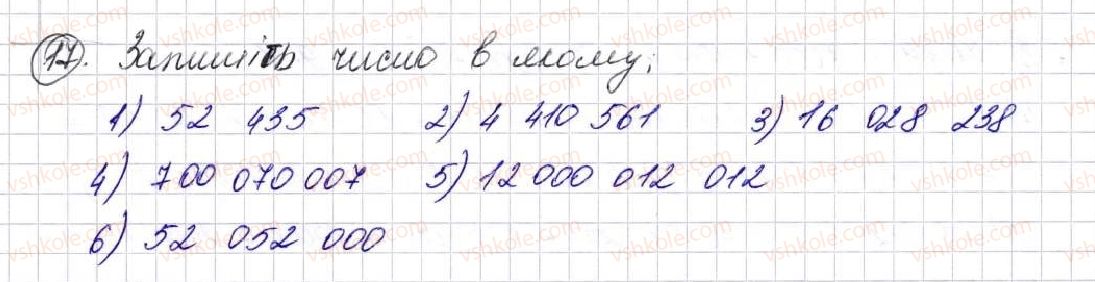 17. Запишіть число в якому;
1) 52 435 2) 4 410 561 3) 16 028 238
4) 700 070 007 5) 12 000 012 012
6) 52 052 000